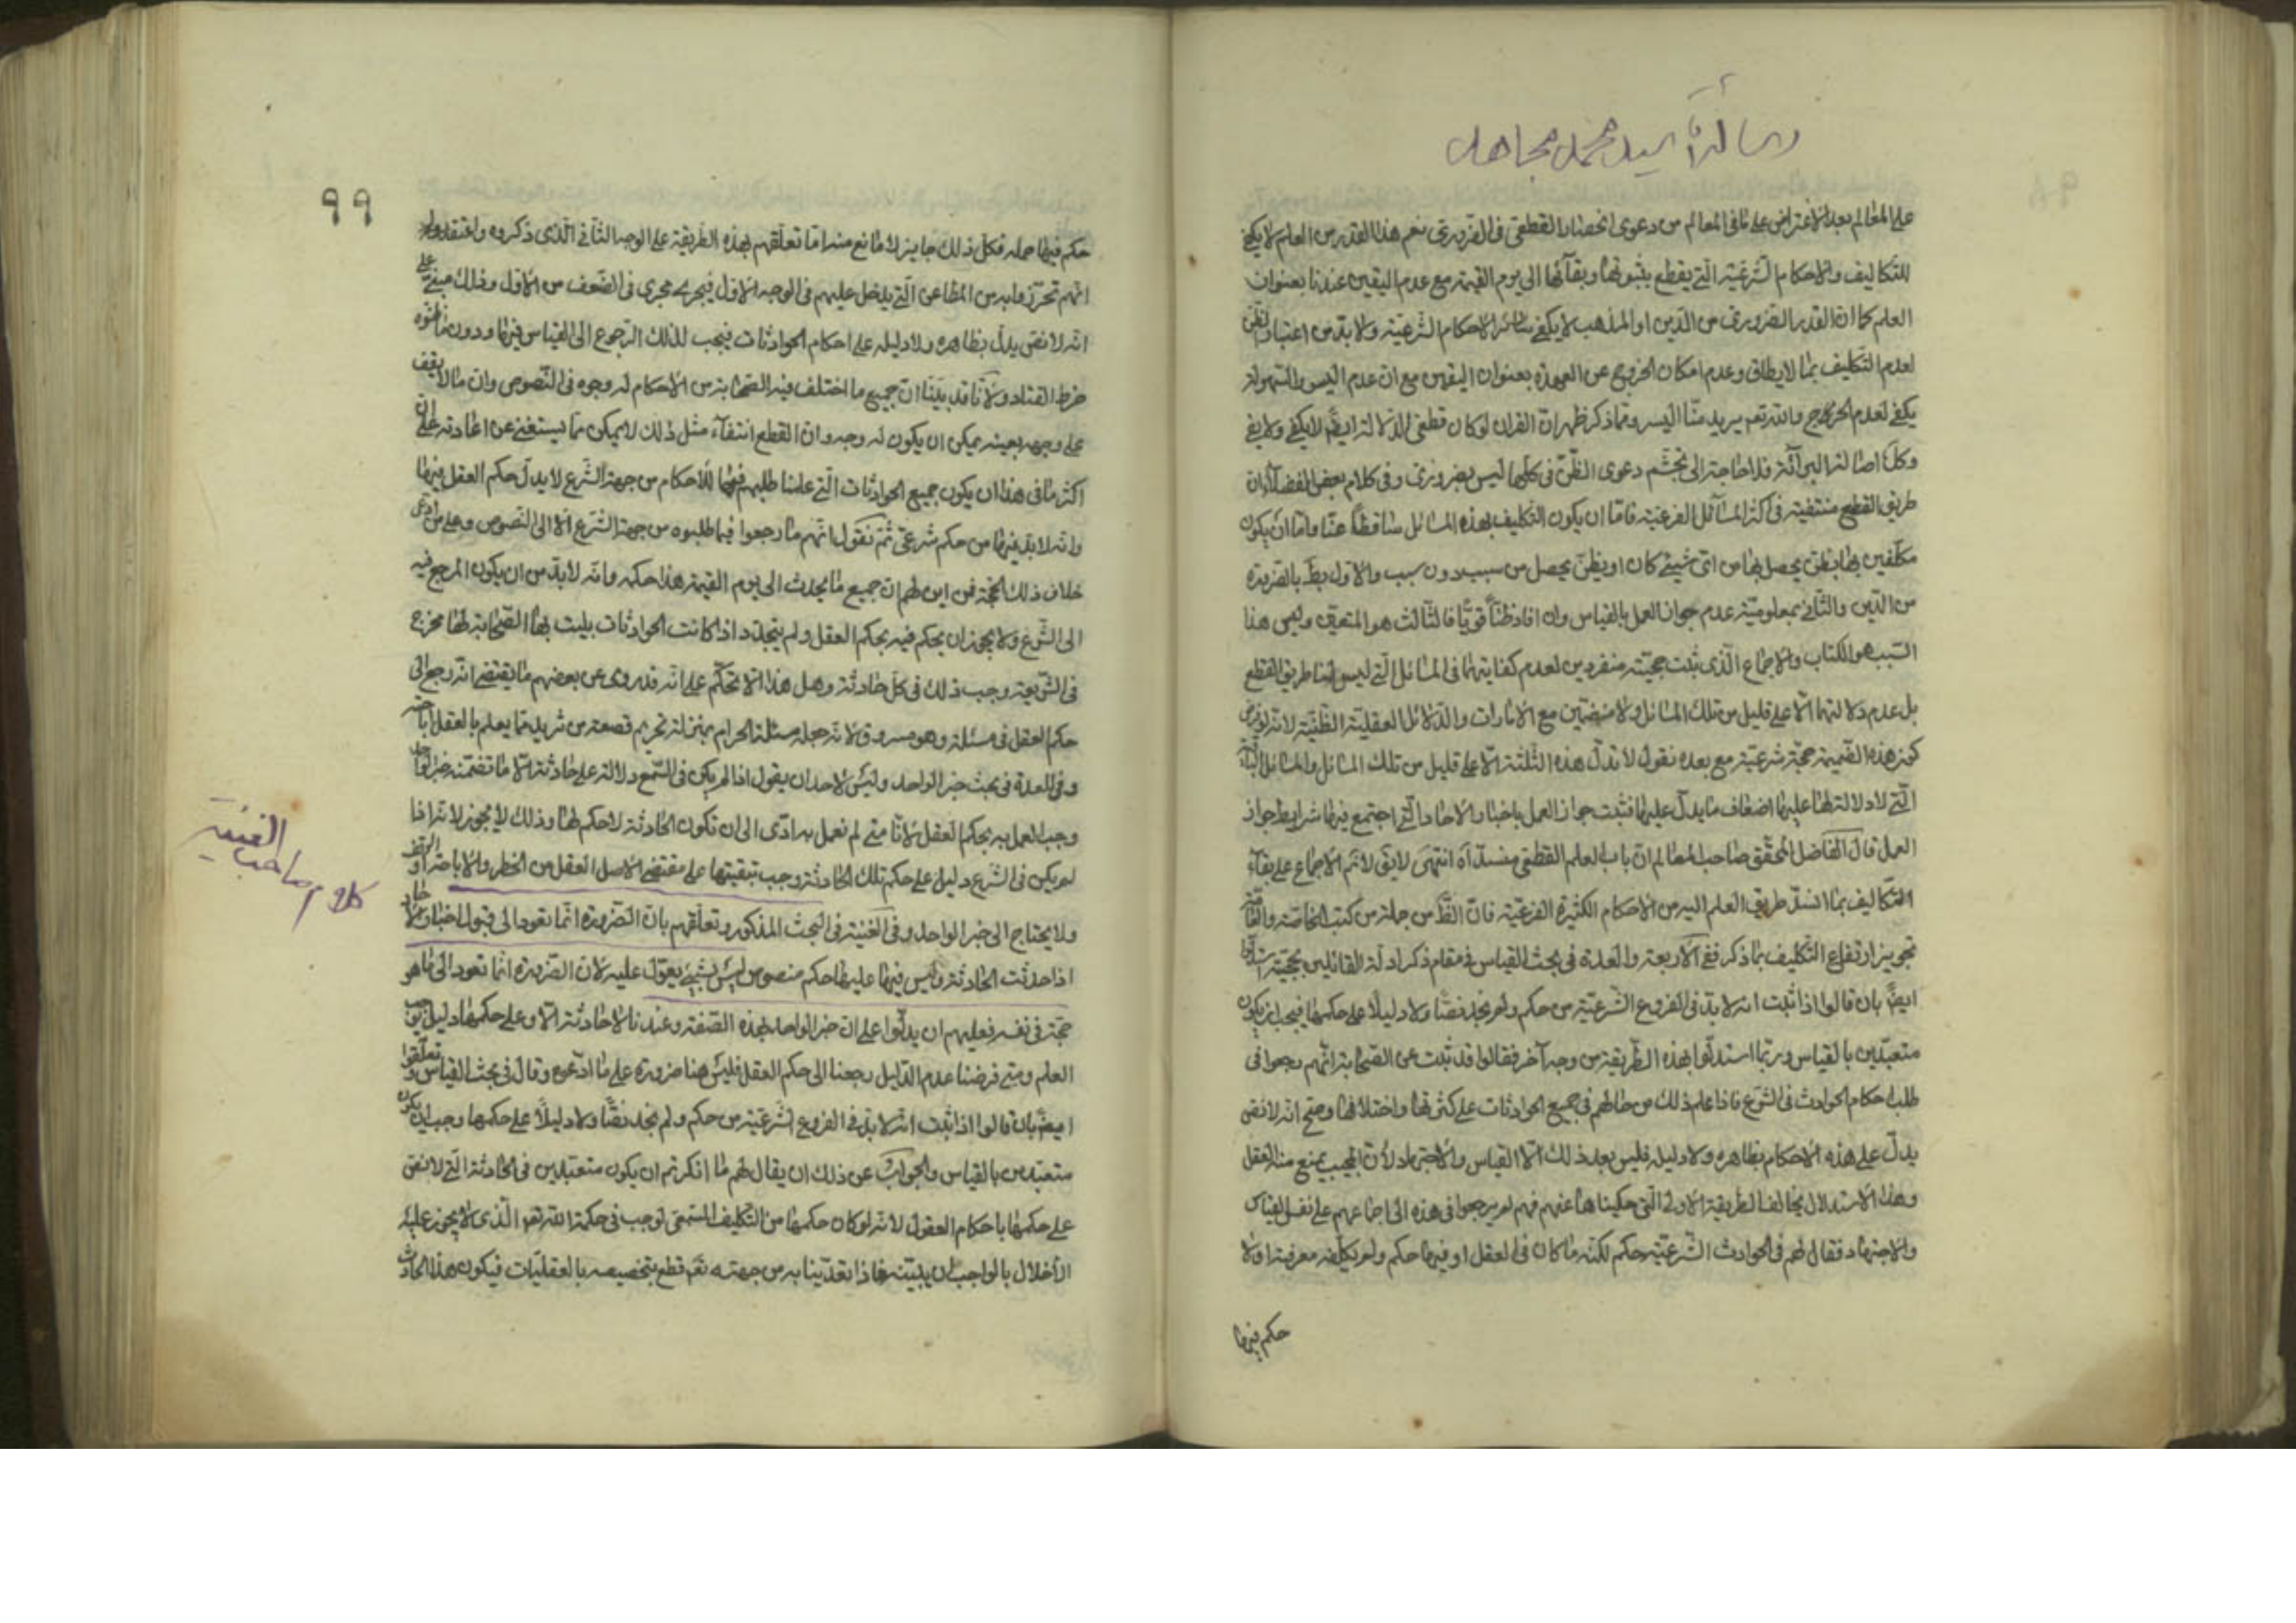 رسالة سيد محمد مجاهد
على المعالم بعد الاعتراض على ما فى المعالم من دعوى انحصار القطعى فى الضرورى نعم هذا القدر من العلم لا يكفى
للتكاليف والاحكام الشرعية التى يقطع بثبوتها وبقائها الى يوم القيمة مع عدم اليقين عندنا بعنوان
العلم كما ان القدر الضرورى من الدين او المذهب لا يكفى لسائر الاحكام الشرعية ولا بد من اعتبار الظن
لعدم التكليف بما لا يطاق وعدم امكان الخروج عن العهدة بعنوان اليقين مع ان عدم اليسر والسهولة
يكفى لعدم الحرج والله تعم يريد منا اليسر ومما ذكر ظهر ان القران لو كان قطعى الدلالة ايضا لا يكفى ولا يغنى
وكذا اصالة البرائة فلا حاجة الى تجشم دعوى الظن فى كلها ليس بضرورى وفى كلام بعض الفضلاء ان
طريق القطع منتفية فى اكثر المسائل الفرعية فاما ان يكون التكليف بهذه المسائل ساقطا عنا واما ان يكون
مكلفين بها بظن يحصل بها من اى شيئ كان او بظن يحصل من سبب دون سبب والاول بط بالضرورة
من الدين والثانى بمعلومية عدم جواز العمل بالقياس وان افاد ظنا قويا فالثالث هو المتعين وليس هذا
السبب هو الكتاب والاجماع الذى ثبت حجيته منفردين لعدم كفايتهما فى المسائل التى ليس لنا طريق القطع
بل عدم دلالتهما الا على قليل من تلك المسائل ولا منضمين مع الامارات والدلائل العقلية الظنية لانه لو فرض
كون هذه الضميمة حجة شرعية مع بعده نقول لا تدل هذه الثلثة الا على قليل من تلك المسائل والمسائل الباقية
التى لا دلالة لها عليها اضعاف ما يدل عليها فثبت جواز العمل باخبار الاحاد التى اجتمع فيها شرايط جواز
العمل قال الفاضل المحقق صاحب المعالم ان باب العلم القطعى منسد آه انتهى لايق لا نم الاجماع على بقاء
التكاليف بما انسد طريق العلم اليه من الاحكام الكثيرة الفرعية فان الظ من جملة من كتب الخاصة والعامة
تجويز ارتفاع التكليف بما ذكر ففى الذريعة والعدة فى بحث القياس فى مقام ذكر ادلة القائلين بحجيته استدلوا
ايضا بان قالوا اذا ثبت انه لا بد فى الفروع الشرعية من حكم ولم نجد نصا ولا دليلا على حكمها فيجب ان يكون
متعبدين بالقياس وربما استدلوا بهذه الطريقة من وجه آخر فقالوا قد ثبت عن الصحابة انهم رجعوا فى
طلب احكام الحوادث فى الشرع فاذا علم ذلك من حالهم فى جميع الحوادثات على كثرتها واختلافها وصح انه لا نص
يدل على هذه الاحكام بظاهره ولا دليله فليس بعد ذلك الا القياس والاجتهاد لان المجيب يمنع منه العقل
وهذا الاستدلال يخالف الطريقة الاولى التى حكيناها عنهم فهم لم يرجعوا فى هذه الى اجماعهم على نفس القياس
والاجتهاد فقال لهم فى الحوادث الشرعية حكم لكنه ما كان فى العقل او فيها حكم ولم يكلفه معرفته اولا
حكم فيها
٩٩
حكم فيها جملة فكل ذلك جايز لا مانع منه اما تعلقهم بهذه الطريقة على الوجه الثانى الذى ذكروه واعتقدوا
انهم تحرزوا به من المطاعن التى يدخل عليهم فى الوجه الاول فيجرى مجرى فى الضعف من الاول وذلك مبنى على
انه لا نص يدل بظاهره ولا دليله على احكام الحوادثات فيجب لذلك الرجوع الى القياس فيها ودون ما ظنوه
خرط القتاد ولانا قد بينا ان جميع ما اختلف فيه الصحابة من الاحكام له وجوه فى النصوص وان ما لا يقف
على وجهه بعينه يمكن ان يكون له وجه وان القطع انتفاء مثل ذلك لا يمكن بما يستغنى عن اعادته على ان
اكثر ما فى هذا ان يكون جميع الحوادثات التى علمنا طلبهم فيها للاحكام من جهة الشرع لا يدل حكم العقل فيها
وانه لا بد فيها من حكم شرعى ثم نقول انهم ما رجعوا فيما طلبوه من جهة الشرع الا الى النصوص وعلى من ادعى
خلاف ذلك الحجة فمن اين لهم ان جميع ما يحدث الى يوم القيمة هذا حكمه وانه لا بد من ان يكون المرجع فيه
الى الشرع ولا يجوز ان يحكم فيه بحكم العقل ولم يتجدد اذا كانت الحوادثات بليت بها الصحابة لها مخرج
فى الشريعة وجب ذلك فى كل حادثة وهل هذا الا تحكم على انه قد روى عن بعضهم ما يقتضى انه رجع الى
حكم العقل فى مسئلة وهو مسروق لانه جعل مسئلة الحرام بمنزلة تحريم قصعة من ثريد مما يعلم بالعقل اباحته
وفى العدة فى بحث خبر الواحد وليس لاحد ان يقول اذا لم يكن فى السمع دلالة على حادثة الا ما تضمنه خبر الواحد
وجب العمل به بحكم العقل لانا متى لم نعمل به ادى الى ان تكون الحادثة لا حكم لها وذلك لا يجوز لانه اذا
لم يكن فى الشرع دليل على حكم تلك الحادثة وجب تبقيتها على مقتضى الاصل العقل من الحظر والاباحة او الوقف
ولا يحتاج الى خبر الواحد وفى الغنية فى البحث المذكور وتعلقهم بان الضرورة انما تعود الى قبول اخبار الاحاد
اذا حدثت الحادثة وليس فيها عليها حكم منصوص ليس بشيئ يعول عليه لان الضرورة انما تعود الى ما هو
حجة فى نفسه فعليهم ان يدلوا على ان خبر الواحد بهذه الصفة وعندنا لا حادثة الا وعلى حكمها دليل يوجب
العلم ومتى فرضنا عدم الدليل رجعنا الى حكم العقل فليس هنا ضرورة على ما ادعوه وقال فى بحث القياس وتعلقوا
ايضا بان قالوا اذا ثبت انه لا بد فى الفروع الشرعية من حكم ولم نجد نصا ولا دليلا على حكمها وجب ان يكون
متعبدين بالقياس والجواب عن ذلك ان يقال لهم ما انكرتم ان يكون متعبدين فى الحادثة التى لا نص
على حكمها باحكام العقول لانه لو كان حكمها من التكليف السمعى لوجب فى حكمة الله تعم الذى لا يجوز عليه
الاخلال بالواجب ان يبينه فاذا تعدينا به من جهته تعم قطع بتخصيصه بالعقليات فيكون هذا الحادث
كلام صاحب الغنية